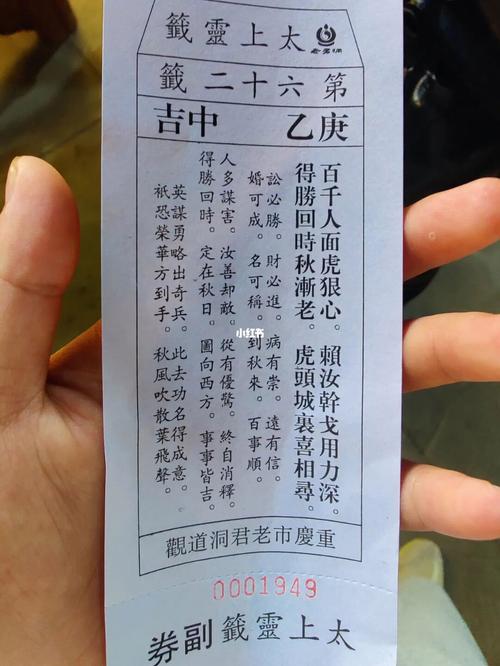 太上靈籤
老君洞
第六十二籤
庚乙 中吉
百千人面虎狠心。賴汝幹戈用力深。
得勝回時秋漸老。虎頭城裏喜相尋。
訟必勝。財必進。病有崇。遠有信。
婚可成。名可稱。到秋來。百事順。
人多謀害。汝善却敵。從有優驚。終自消釋。
得勝回時。定在秋日。圖向西方。事事皆吉。
英謀勇略出奇兵。此去功名得成意。
祇恐榮華方到手。秋風吹散葉飛聲。
小红书
重慶市老君洞道觀
0001949
太上靈籤副券